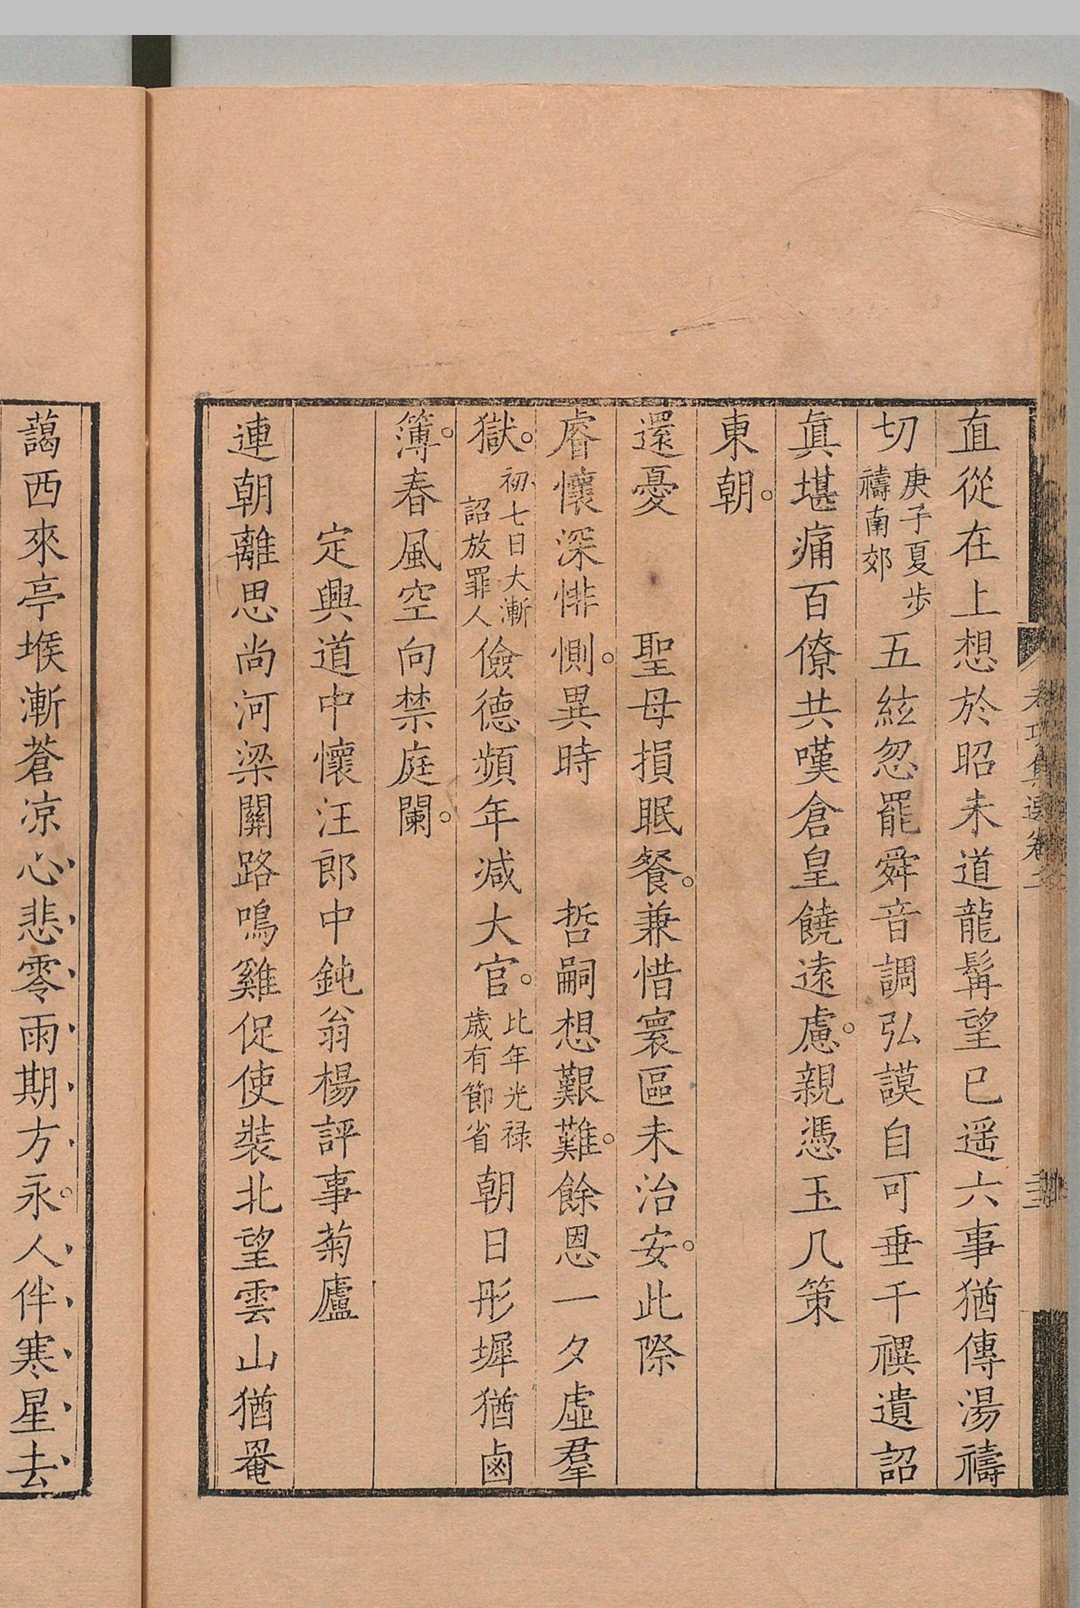 直從在上想於昭未道龍髯望已遥六事猶傳湯禱
切庚子夏步禱南郊五絃忽罷舜音調弘謨自可垂千禩遺詔
真堪痛百僚共嘆倉皇饒遠慮。親憑玉几策
東朝。
還憂 聖母損眠餐。兼惜寰區未治安。此際
睿懷深悱惻。異時 哲嗣想艱難。餘恩一夕虛羣
獄。初七日大漸詔放罪人儉德頻年减大官。比年光禄歲有節省朝日彤墀猶鹵
簿。春風空向禁庭闌。
定興道中懷汪郎中鈍翁楊評事菊廬
連朝離思尚河梁關路鳴雞促使裝北望雲山猶罨
藹西來亭堠漸蒼凉心悲零雨期方永。人伴寒星去